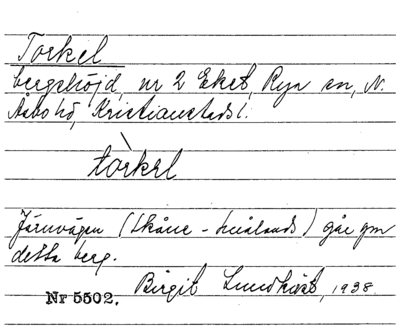 Torkel
bergshöjd, nr 2 Eket, Rya sn, N.
Åsbo hd, Kristianstads l.
tòrkəl
Järnvägen (Skåne - Småland) går gm
detta berg.
Nr 5502. Birgit Lundkvist, 1938.